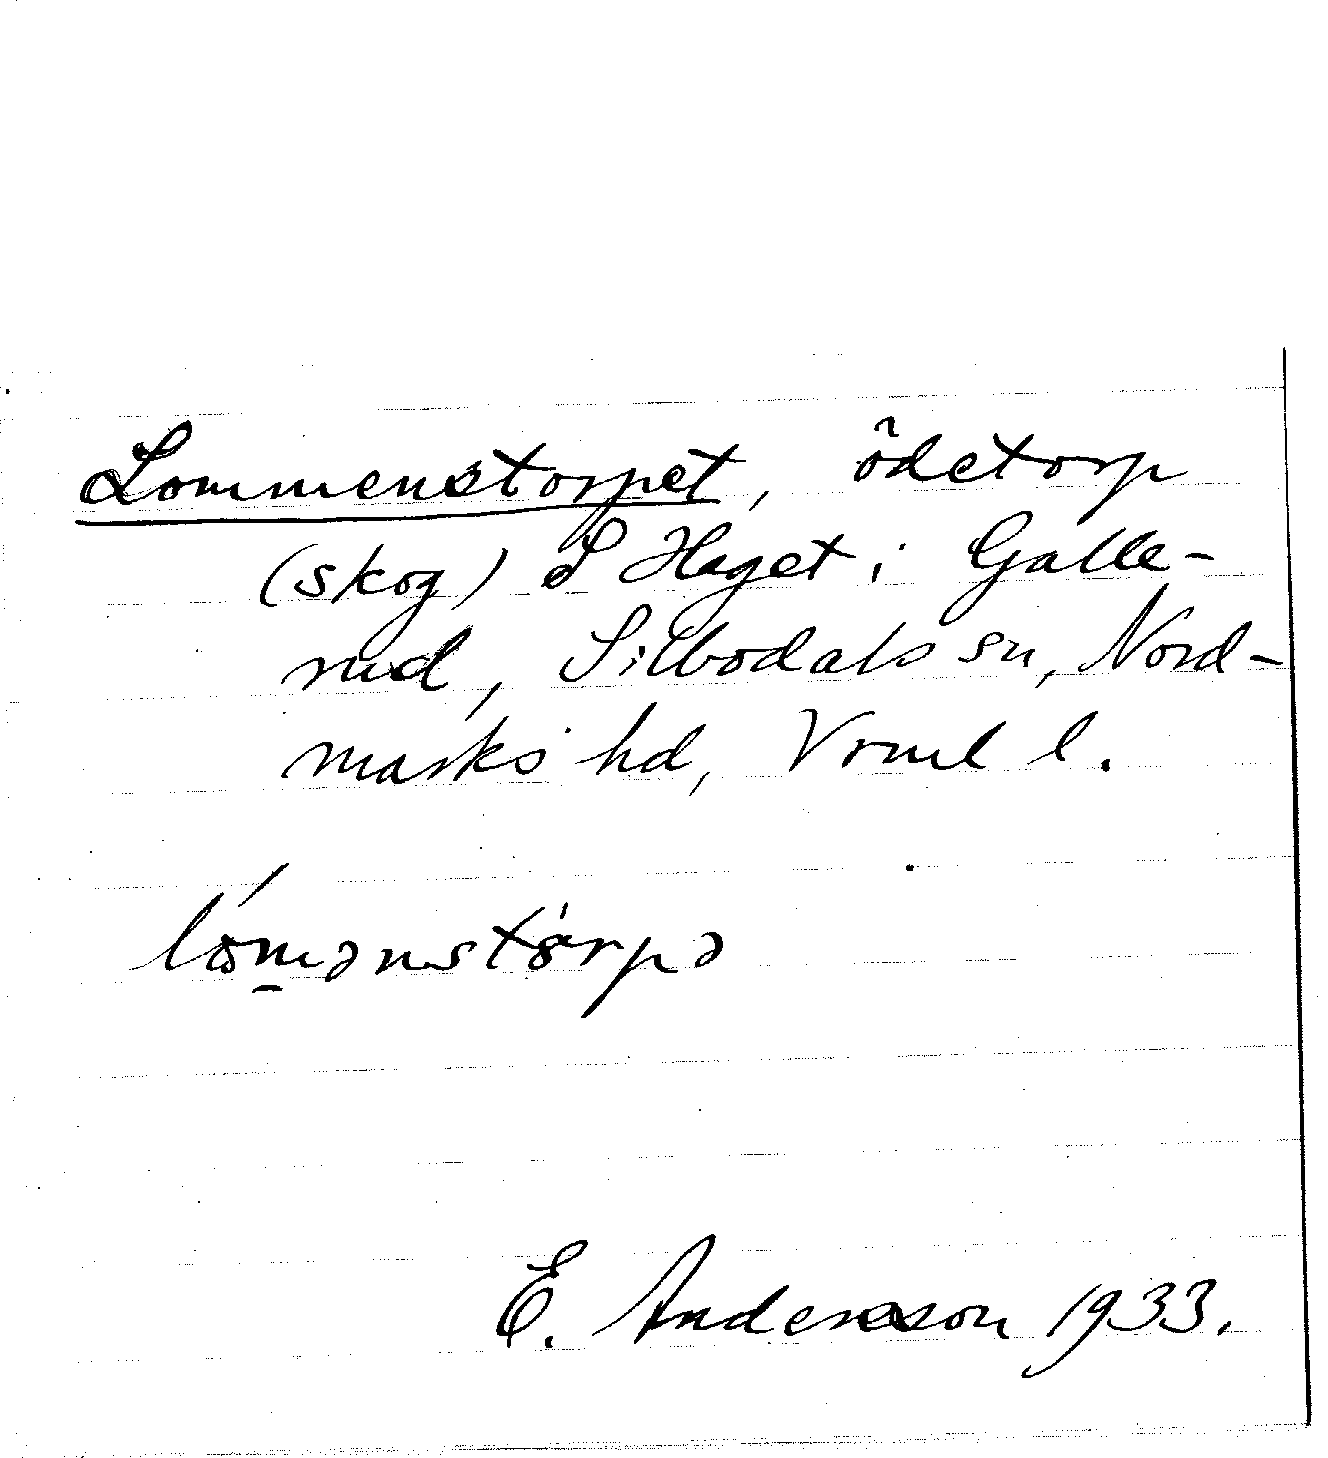 Lommenstorpet, ödetorp
(skog) S Haget i Galle-
rud, Silbodals sn, Nord-
marks hd, Vrml l.
lómənstò́rpə
E. Andersson 1933.